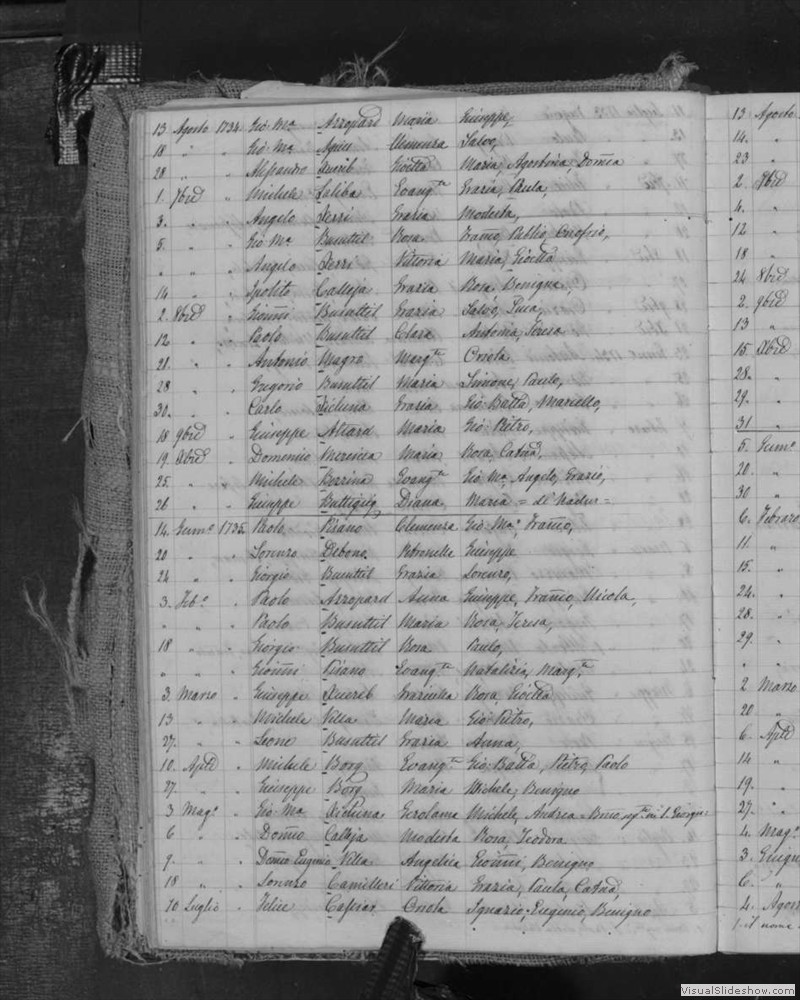 13 Agosto 1734 Gio Ma Azzopard Maria Giuseppe,
18 " " Gio Ma Agius Clemenza Salvo,
28 " " Alessandro Xuerib Gioetta Maria, Agostina, Domca
1. 7bre " Michele Saliba Evangta Grazia, Paula,
3. " " Angelo Xerri Grazia Modesta,
5. " " Gio Ma Busuttil Rosa Franco, Publio, Onofrio,
" " " Angelo Xerri Vittoria Maria, Gioetta
14 " " Ipolito Calleja Grazia Rosa, Benigna,
2. 8bre " Gionni Busuttil Grazia Salvo, Luca,
12 " " Paolo Busuttil Clara Antonia, Teresa
21. " " Antonio Magro Margta Oriola
28 " " Gregorio Busuttil Maria Simone, Paulo,
30. " " Carlo Xicluna Grazia Gio Batta, Mariello,
18 9bre " Giuseppe Attard Maria Gio Pietro,
19. Xbre " Domenico Mersieca Maria Rosa, Catna,
25 " " Michele Bezzina Evangta Gio Ma, Angelo, Grazio,
26 " " Giuseppe Buttigieg Diana Maria = de Nadur =
14. Genno 1735 Paolo Pisano Clemenza Gio Ma, Franco,
20 " " Lorenzo Debono Petronilla Giuseppe
24 " " Giorgio Busuttil Grazia Lorenzo,
3. Febo " Paolo Azzopard Anna Giuseppe, Franco, Nicola,
" " " Paolo Busuttil Maria Rosa, Teresa,
18 " " Giorgio Busuttil Rosa Paulo,
" " " Gionni Pisano Evangta Natalizia, Margta
3. Marzo " Giuseppe Xuereb Graziulla Rosa, Gioetta
13 " " Michele Villa Maria Gio Pietro,
27. " " Leone Busuttil Grazia Anna,
10. Aple " Michele Borg Evangta Gio Batta, Pietro, Paolo
27. " " Giuseppe Borg Maria Michele, Benigno
3 Mago " Gio Ma Xicluna Gerolama Michele, Andrea
6 " " Domco Calleja Modesta Rosa, Teodora
9. " " Domco Eugenio Villa Angelica Gionni, Benigno
18 " " Lorenzo Camilleri Vittoria Grazia, Paula, Catna,
20 Luglio " Felice Cafior Oriola Ignazio, Eugenio, Benigno
13 Agosto
14. "
23 "
2. 7bre
4. "
12 "
18 "
24 8bre
2. 9bre
13 "
15. Xbre
28. "
29. "
31 "
5. Genno
20. "
30 "
6. Febraro
11. "
15. "
24. "
28. "
29. "
" "
2 Marzo
20 "
6. Aple
14 "
19. "
27. "
4. Mago
3. Giugn
6. "
4. Agos
VisualSlideshow.com